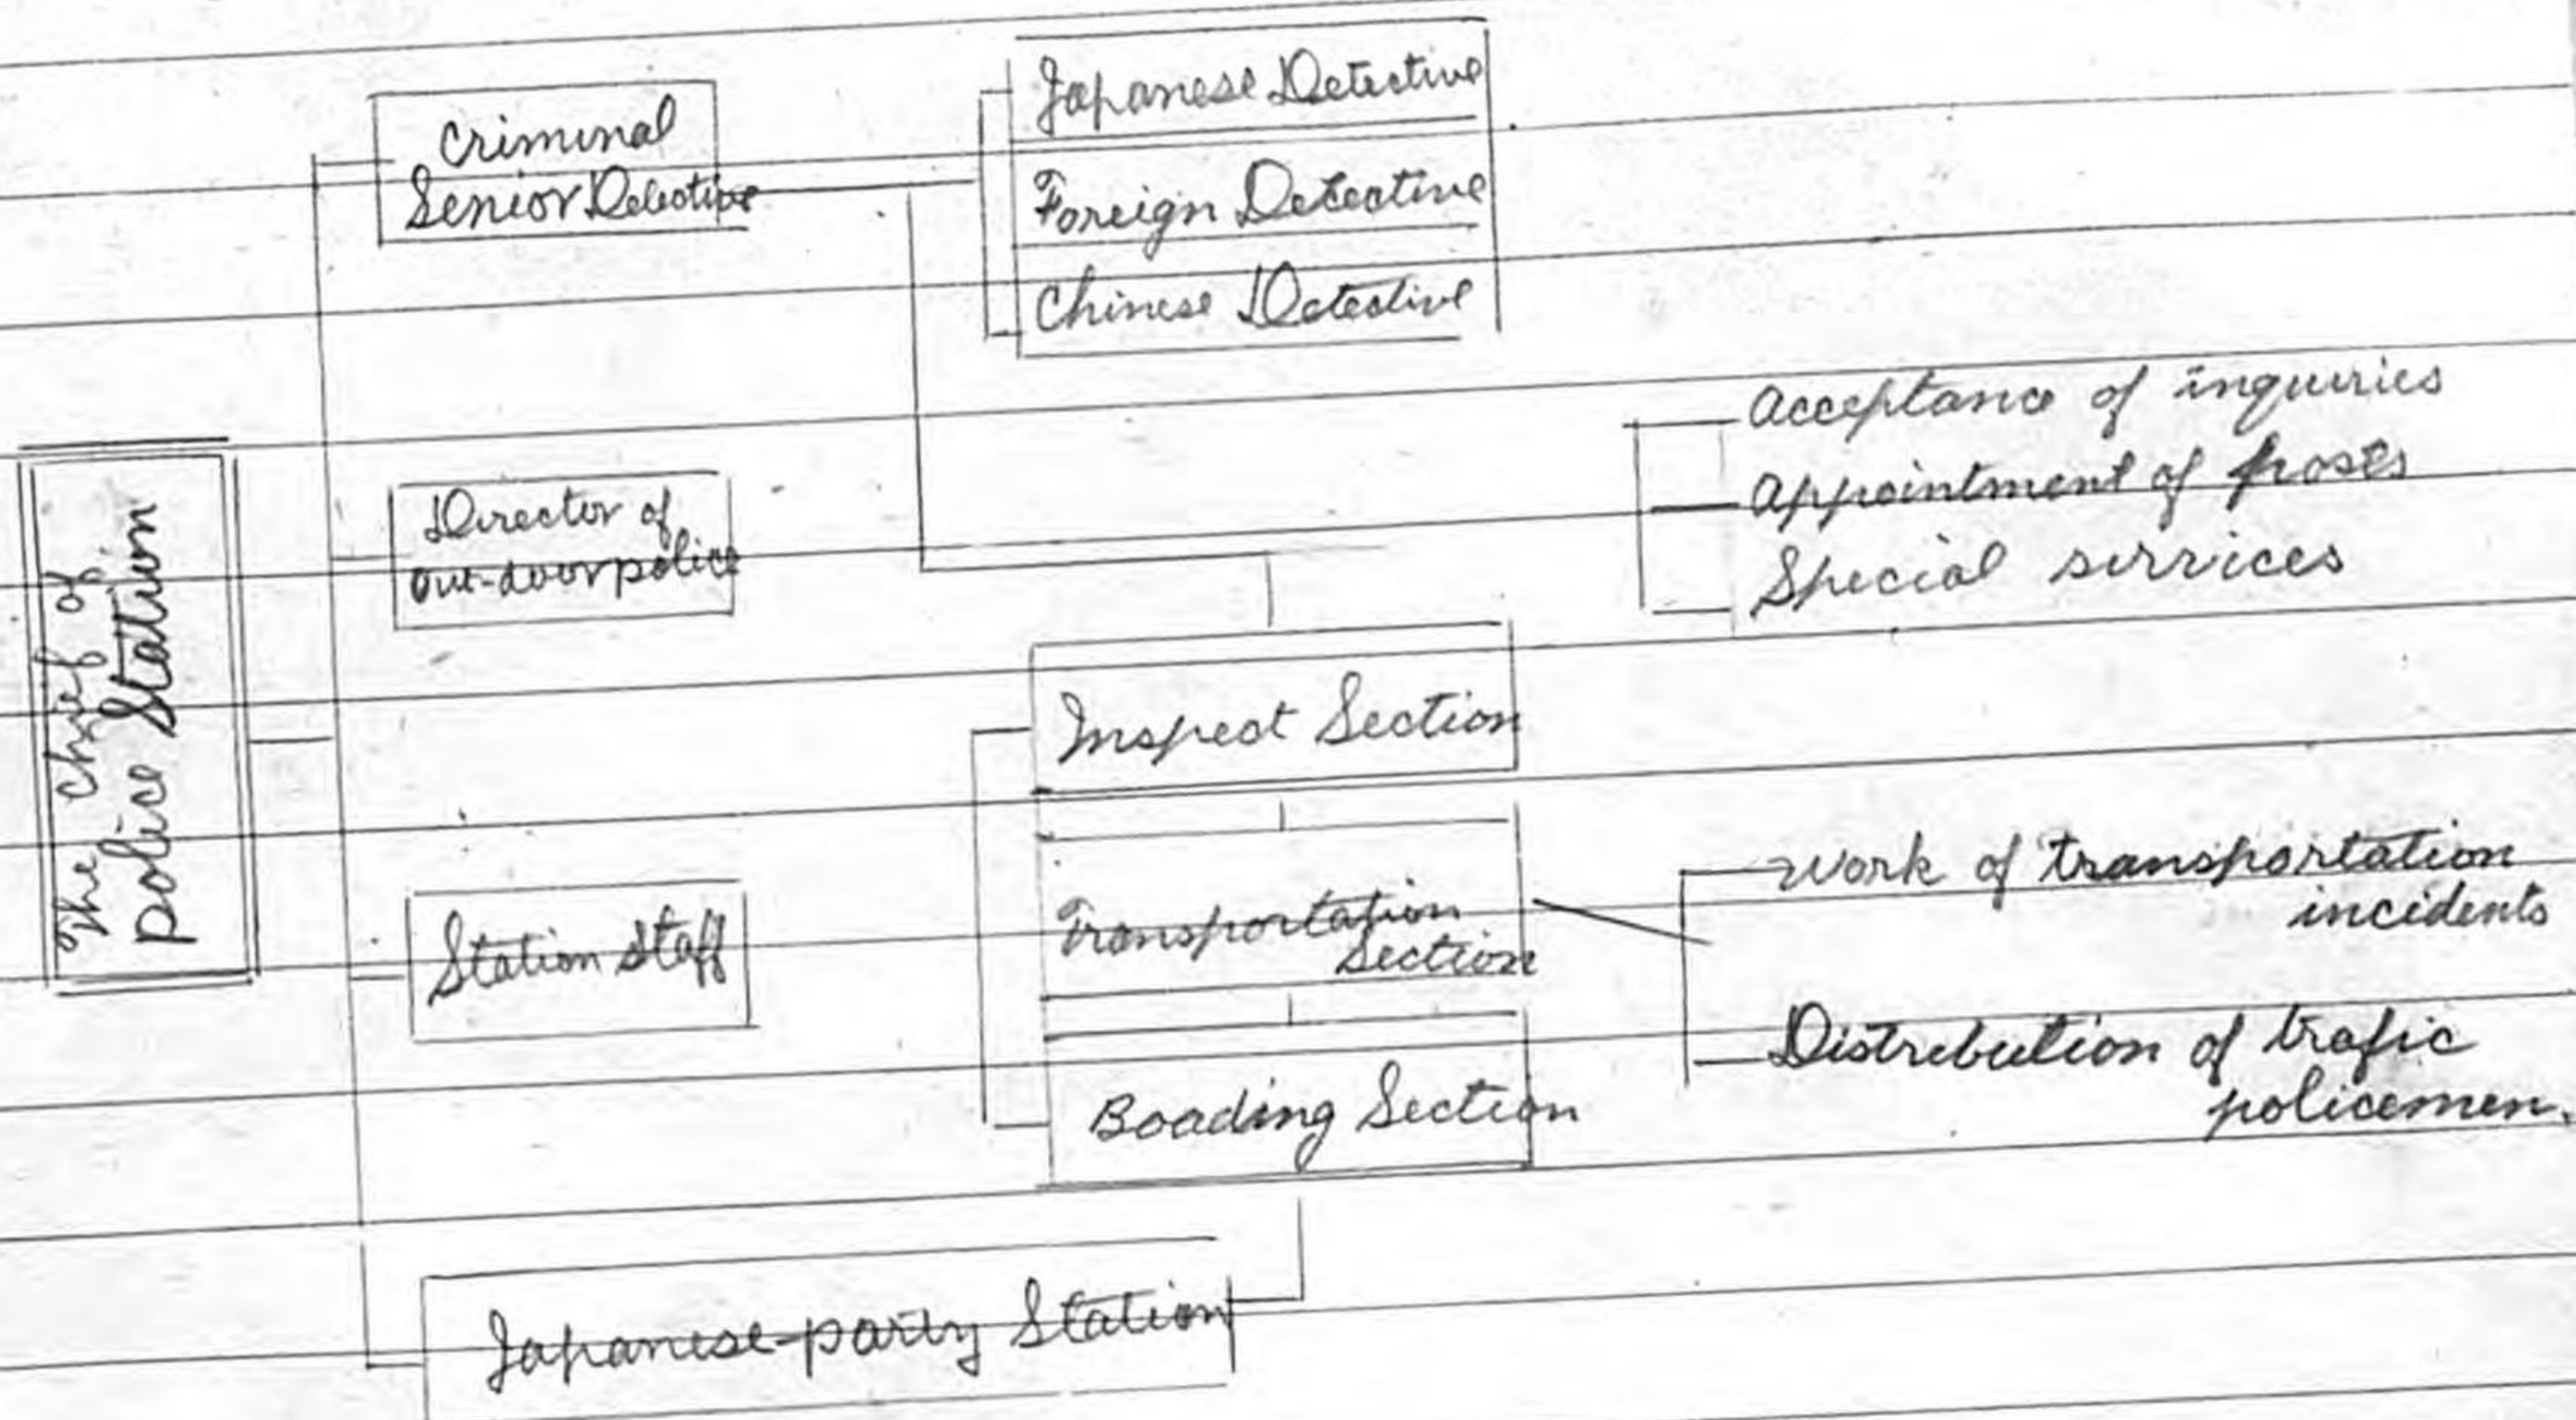 The chief of
police Station
Criminal
Senior Detective
Director of
out-door police
Station staff
Japanese-party Station
Japanese Detective
Foreign Detective
Chinese Detective
Inspect Section
Transportation
Section
Boading Section
Acceptance of inquiries
Appointment of posts
Special services
Work of transportation
incidents
Distribution of trafic
policemen.